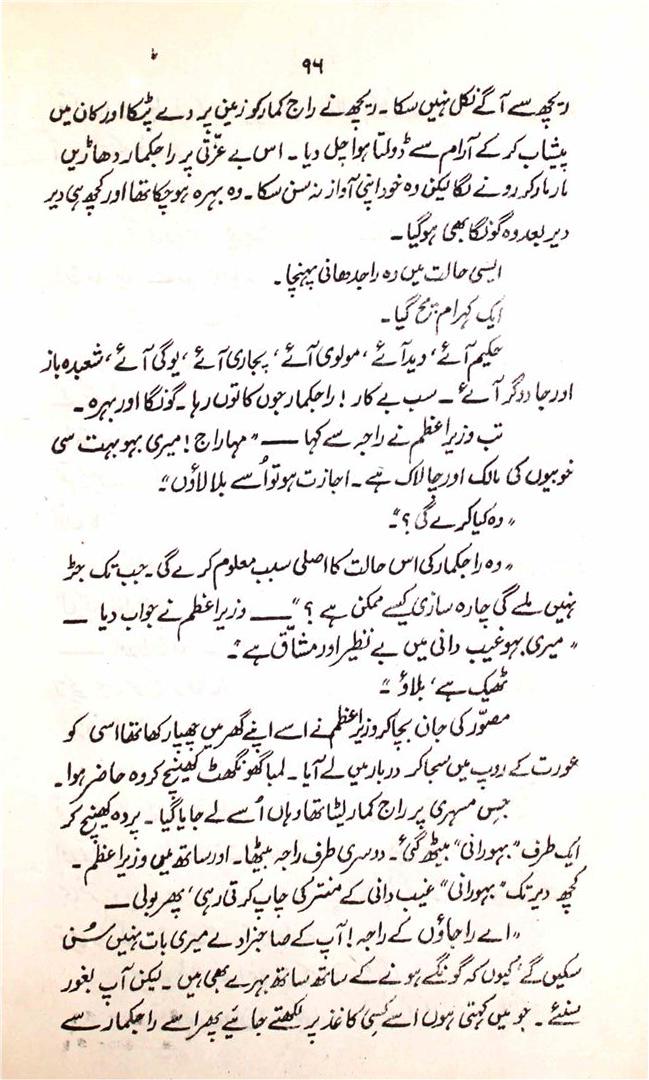 ۹۶
ریچھ سے آگے نکل نہیں سکا۔ ریچھ نے راج کمار کو زمین پر دے پٹکا اور کان میں
پیشاب کر کے آرام سے ڈولتا ہوا چل دیا۔ اس بے عزّتی پر راجکمار دھاڑیں
مار مار کر رونے لگا لیکن وہ خود اپنی آواز نہ سن سکا۔ وہ بہرہ ہو چکا تھا اور کچھ ہی دیر
دیر بعد وہ گونگا بھی ہوگیا۔
ایسی حالت میں وہ راجدھانی پہنچا۔
ایک کہرام مچ گیا۔
حکیم آئے، وید آئے، مولوی آئے، پجاری آئے، یوگی آئے، شعبدہ باز
اور جادوگر آئے۔ سب بے کار! راجکمار جوں کا توں رہا۔ گونگا اور بہرہ۔
تب وزیر اعظم نے راجہ سے کہا — "مہاراج! میری بہو بہت سی
خوبیوں کی مالک اور چالاک ہے۔ اجازت ہو تو اُسے بلا لاؤں"۔
"وہ کیا کرے گی؟"۔
"وہ راجکمار کی اس حالت کا اصلی سبب معلوم کرے گی۔ جب تک جڑ
نہیں ملے گی چارہ سازی کیسے ممکن ہے؟" — وزیر اعظم نے جواب دیا —
"میری بہو غیب دانی میں بے نظیر اور مشاق ہے"۔
ٹھیک ہے، بلاؤ"۔
مصوّر کی جان بچا کر وزیر اعظم نے اسے اپنے گھر میں چھپا رکھا تھا اسی کو
عورت کے روپ میں سجا کر دربار میں لے آیا۔ لمبا گھونگھٹ کھینچ کر وہ حاضر ہوا۔
جس مسہری پر راج کمار لیٹا تھا وہاں اُسے لے جایا گیا۔ پردہ کھینچ کر
ایک طرف "بہورانی" بیٹھ گئی۔ دوسری طرف راجہ بیٹھا۔ اور ساتھ میں وزیر اعظم۔
کچھ دیر تک "بہورانی" غیب دانی کے منتر کی جاپ کرتی رہی، پھر بولی —
"اے راجاؤں کے راجہ! آپ کے صاحبزادے میری بات نہیں سُن
سکیں گے، کیوں کہ گونگے ہونے کے ساتھ ساتھ بہرے بھی ہیں۔ لیکن آپ بغور
سنئے۔ جو میں کہتی ہوں اسے کسی کاغذ پر لکھتے جائیے پھر اسے راجکمار سے